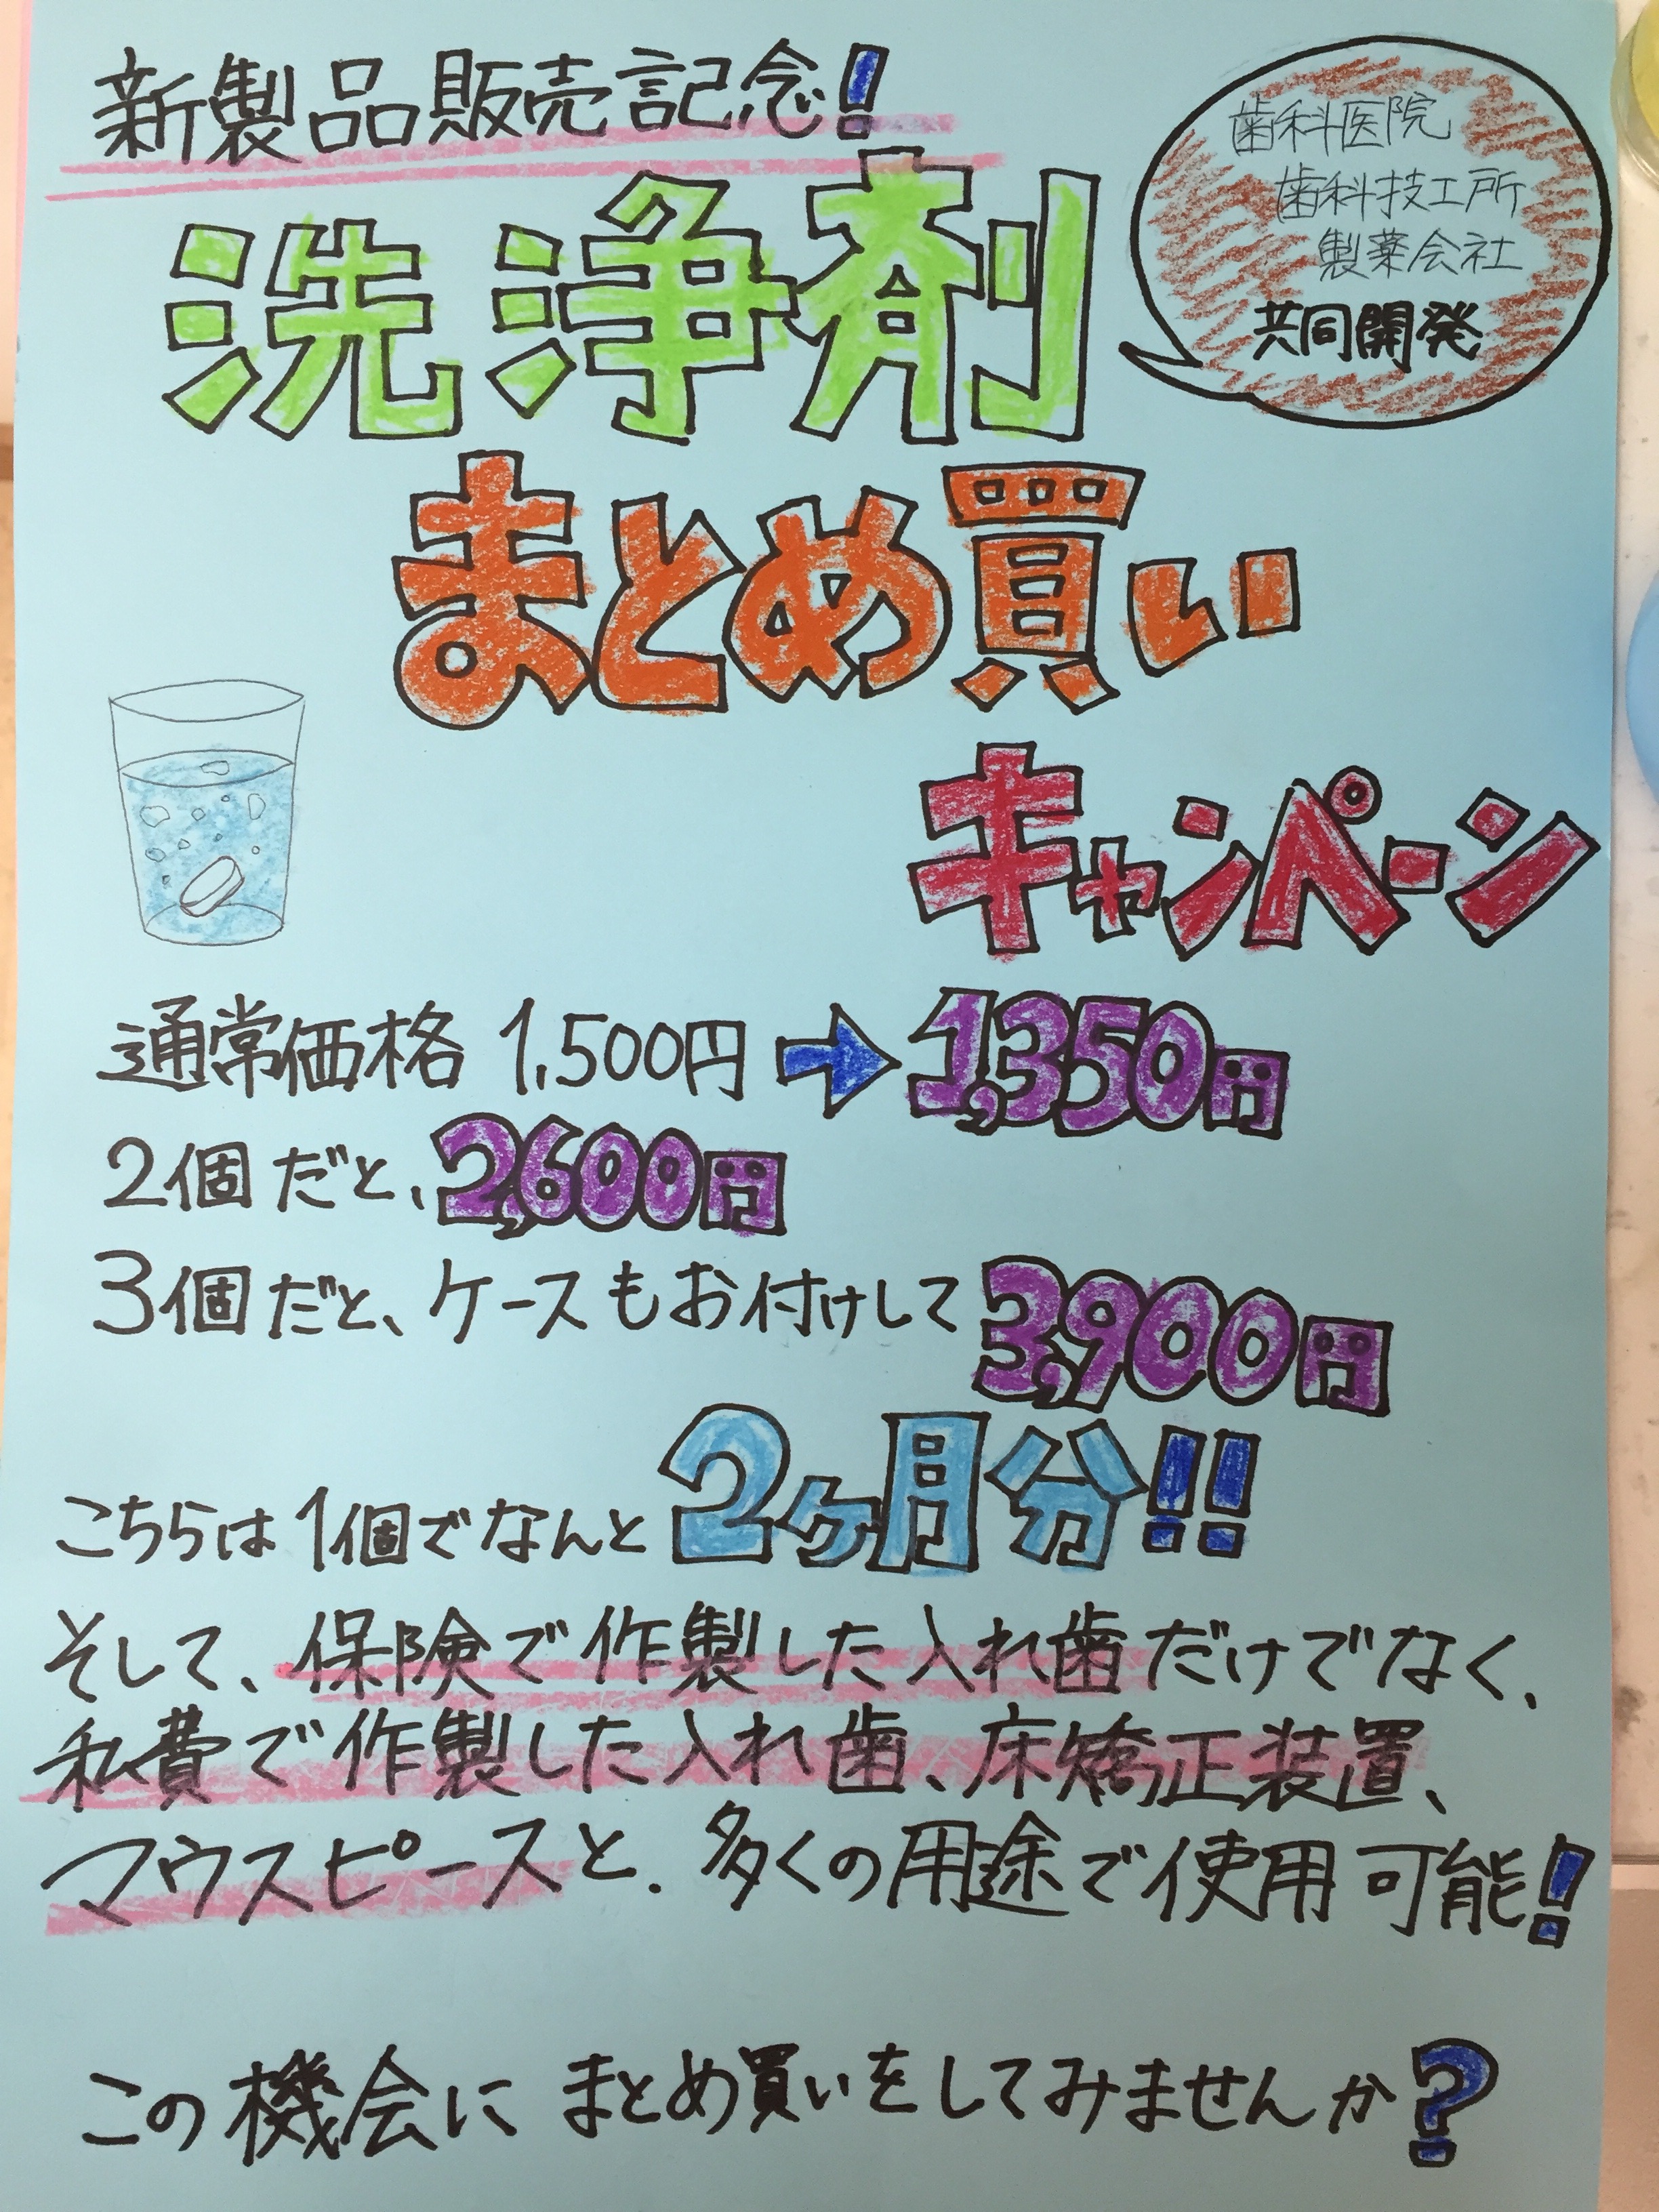 新製品販売記念！
歯科医院
歯科技工所
製薬会社
共同開発
洗浄剤
まとめ買い
キャンペーン
通常価格 1,500円 ➡ 1,350円
2個だと、2,600円
3個だと、ケースもお付けして 3,900円
こちらは1個でなんと 2ヶ月分!!
そして、保険で作製した入れ歯だけでなく、
私費で作製した入れ歯、床矯正装置、
マウスピースと、多くの用途で使用可能！
この機会に まとめ買いをしてみませんか？